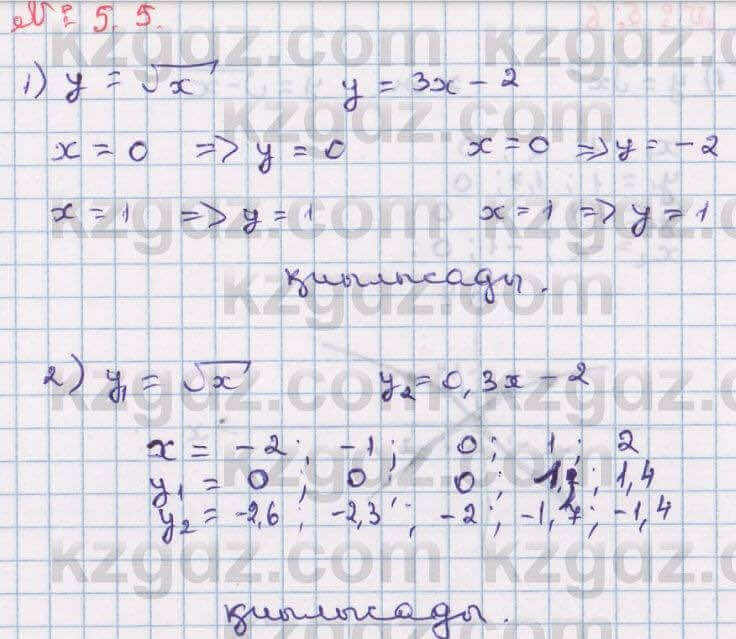 № 5.5.
1) y = √x y = 3x - 2
x = 0 => y = 0 x = 0 => y = -2
x = 1 => y = 1 x = 1 => y = 1
қиылысады.
2) y₁ = √x y₂ = 0,3x - 2
x = -2; -1; 0; 1; 2
y₁ = 0; 0; 0; 1; 1,4
y₂ = -2,6; -2,3; -2; -1,7; -1,4
қиылысады.
kzgdz.com